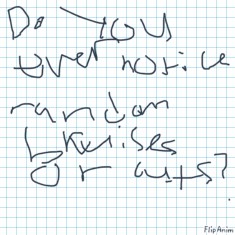 Do you
ever notice
random
bruises
or cuts?
FlipAnim